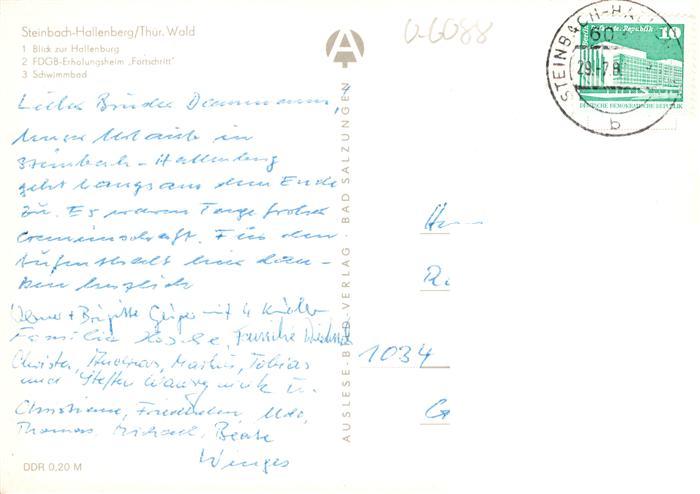 Steinbach-Hallenberg/Thür. Wald
1 Blick zur Hallenburg
2 FDGB-Erholungsheim „Fortschritt"
3 Schwimmbad
0-6088
STEINBACH-HAL
6056
29.-7.8
b
10
Palast der Republik
DEUTSCHE DEMOKRATISCHE REPUBLIK
Lieber Bruder Diermann,
unser Urlaub in
Steinbach-Hallenberg
geht langsam dem Ende
zu. Es waren Tage froher
Gemeinschaft. Für den
Aufenthalt hier dan-
ken herzlich
Werner + Brigitte Geiger mit 4 Kindern
Familie Familie
Christa, Andreas, Markus, Tobias
und Steffen u.
Christiane, Friedhelm, Udo,
Thomas, Michael, Beate
Winges
AUSLESE-BILD-VERLAG BAD SALZUNGEN
1034
DDR 0,20 M